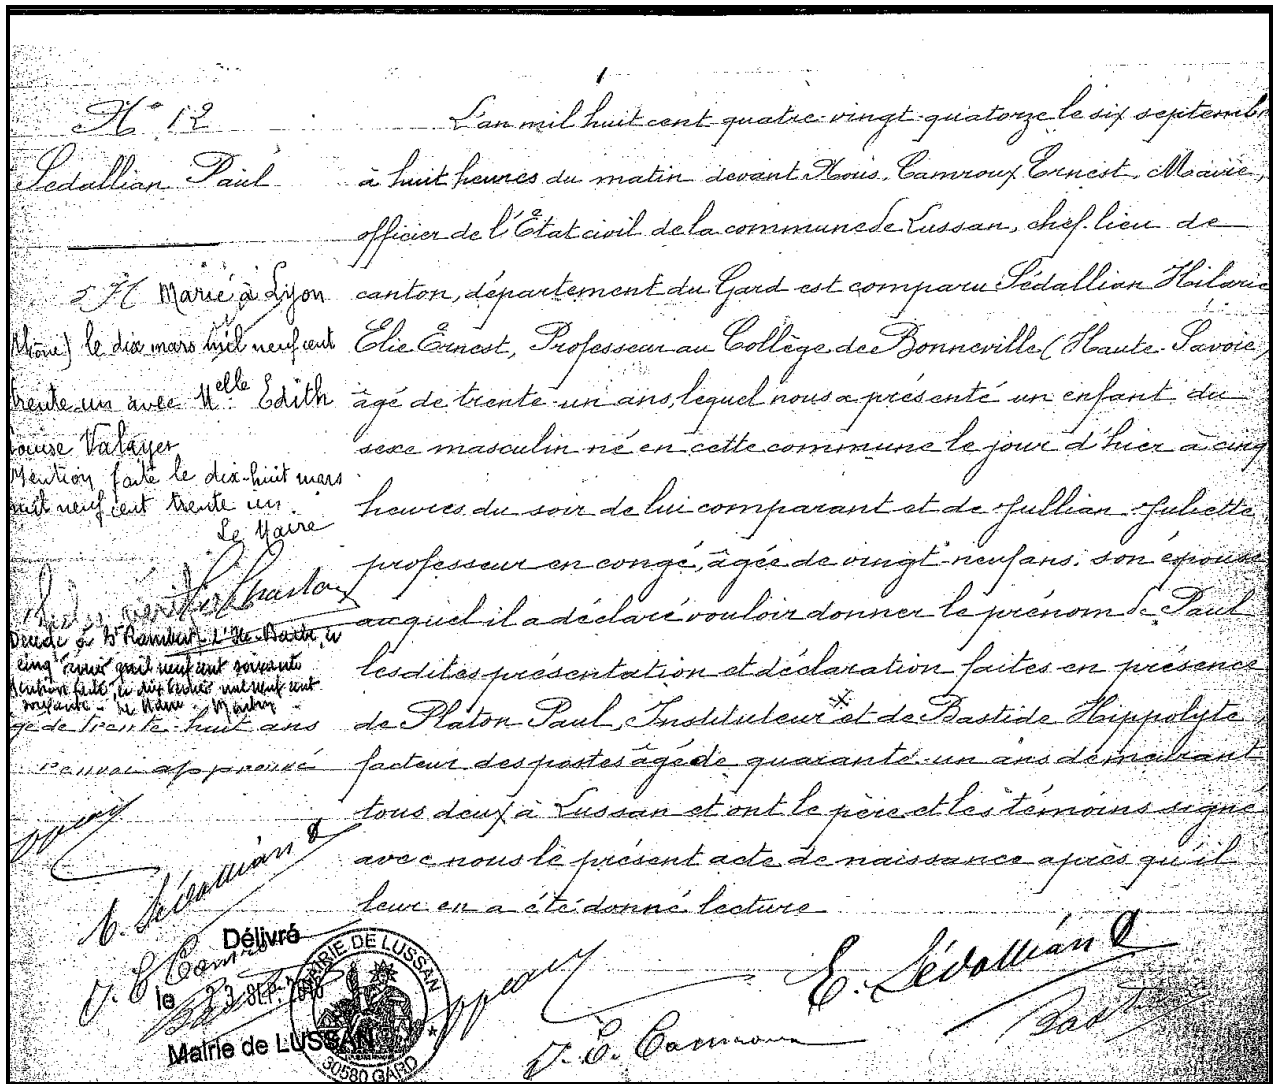 N° 12
Sédallian Paul
Marié à Lyon
(Rhône) le dix mars mil neuf cent
trente un avec Melle Edith
Louise Valayer
Mention faite le dix-huit mars
mil neuf cent trente un.
Le Maire
Décédé à St Rambert-L'Ile-Barbe, le
cinq mil neuf cent soixante
Mention faite, le dix mil neuf cent
soixante. Le Maire
âgé de trente-huit ans
renvoi approuvé
E. Sédallian
J. E. Camroux
L'an mil huit cent quatre-vingt-quatorze le six septembre
à huit heures du matin devant Nous, Camroux Ernest, Maire,
officier de l'Etat civil de la commune de Lussan, chef lieu de
canton, département du Gard est comparu Sédallian Hilaric
Elie Ernest, Professeur au Collège de Bonneville (Haute-Savoie)
âgé de trente-un ans, lequel nous a présenté un enfant du
sexe masculin né en cette commune le jour d'hier à cinq
heures du soir de lui comparant et de Jullian Juliette,
professeur en congé, âgée de vingt-neuf ans, son épouse
auquel il a déclaré vouloir donner le prénom de Paul
lesdites présentation et déclaration faites en présence
de Platon Paul, Instituteur et de Bastide Hippolyte,
facteur des postes âgé de quarante-un ans demeurant
tous deux à Lussan et ont le père et les témoins signé
avec nous le présent acte de naissance après qu'il
leur en a été donné lecture
E. Sédallian
J. E. Camroux
Bastide
Délivré
le 23 SEP. 2016
Mairie de LUSSAN
MAIRIE DE LUSSAN
30580 GARD